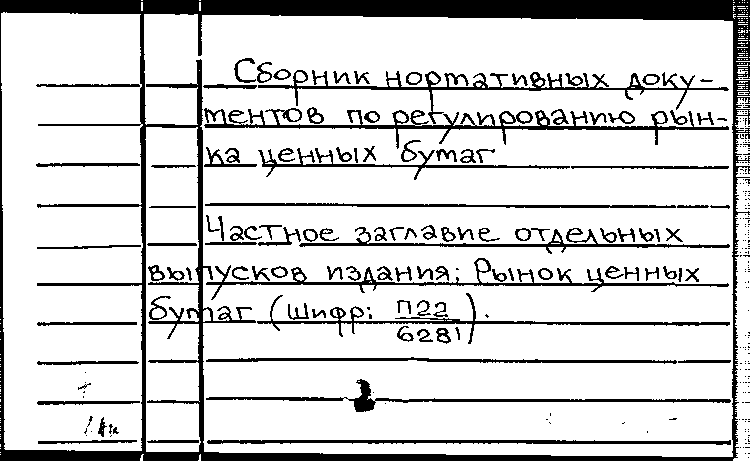 Сборник нормативных доку-
ментов по регулированию рын-
ка ценных бумаг
Частное заглавие отдельных
выпусков издания: Рынок ценных
бумаг (Шифр: П22/6281).